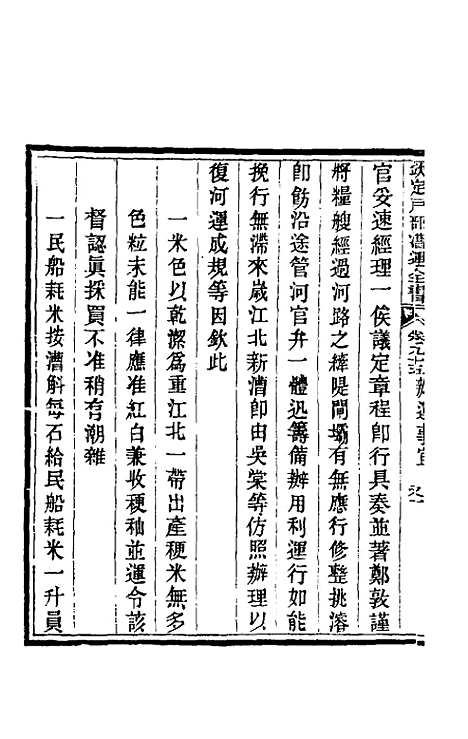 欽定戶部漕運全書 卷九十五 辦運事宜
官妥速經理一俟議定章程卽行具奏並著鄭敦謹
將糧艘經過河路之縴隄閘壩有無應行修整挑濬
卽飭沿途管河官弁一體迅籌備辦用利運行如能
挽行無滯來歲江北新漕卽由吳棠等仿照辦理以
復河運成規等因欽此
一米色以乾潔爲重江北一帶出產稉米無多
色粒未能一律應准紅白兼收稉秈並運令該
督認眞採買不准稍有潮雜
一民船耗米按漕斛每石給民船耗米一升員